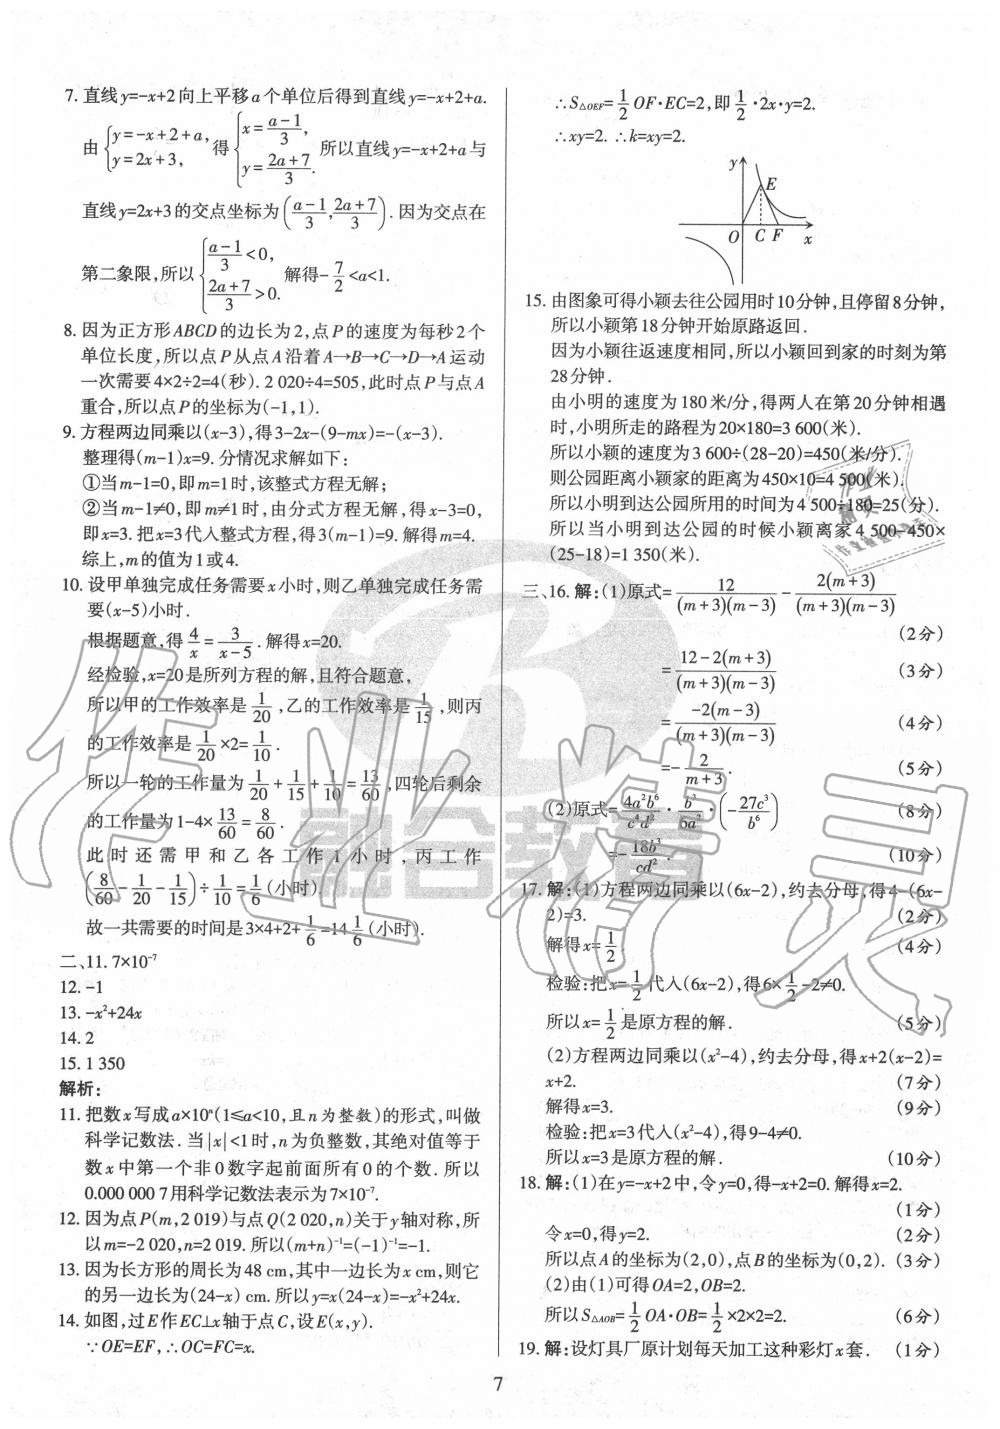 7. 直线y=-x+2向上平移a个单位后得到直线y=-x+2+a.
由{y=-x+2+a, y=2x+3, 得{x=(a-1)/3, y=(2a+7)/3. 所以直线y=-x+2+a与
直线y=2x+3的交点坐标为((a-1)/3,(2a+7)/3). 因为交点在
第二象限,所以{(a-1)/3<0, (2a+7)/3>0. 解得-7/2<a<1.
8. 因为正方形ABCD的边长为2,点P的速度为每秒2个
单位长度,所以点P从点A沿着A→B→C→D→A运动
一次需要4×2÷2=4(秒). 2 020÷4=505,此时点P与点A
重合,所以点P的坐标为(-1,1).
9. 方程两边同乘以(x-3),得3-2x-(9-mx)=-(x-3).
整理得(m-1)x=9. 分情况求解如下:
①当m-1=0,即m=1时,该整式方程无解;
②当m-1≠0,即m≠1时,由分式方程无解,得x-3=0,
即x=3.把x=3代入整式方程,得3(m-1)=9.解得m=4.
综上,m的值为1或4.
10. 设甲单独完成任务需要x小时,则乙单独完成任务需
要(x-5)小时.
根据题意,得4/x=3/(x-5). 解得x=20.
经检验,x=20是所列方程的解,且符合题意,
所以甲的工作效率是1/20,乙的工作效率是1/15,则丙
的工作效率是1/20×2=1/10.
所以一轮的工作量为1/20+1/15+1/10=13/60,四轮后剩余
的工作量为1-4×13/60=8/60.
此时还需甲和乙各工作1小时,丙工作
(8/60-1/20-1/15)÷1/10=1/6(小时)
故一共需要的时间是3×4+2+1/6=14 1/6(小时).
二、11. 7×10⁻⁷
12. -1
13. -x²+24x
14. 2
15. 1 350
解析:
11. 把数x写成a×10ⁿ(1≤a<10,且n为整数)的形式,叫做
科学记数法. 当|x|<1时,n为负整数,其绝对值等于
数x中第一个非0数字起前面所有0的个数. 所以
0.000 000 7用科学记数法表示为7×10⁻⁷.
12. 因为点P(m,2 019)与点Q(2 020,n)关于y轴对称,所
以m=-2 020,n=2 019. 所以(m+n)⁻¹=(-1)⁻¹=-1.
13. 因为长方形的周长为48 cm,其中一边长为x cm,则它
的另一边长为(24-x) cm. 所以y=x(24-x)=-x²+24x.
14. 如图,过E作EC⊥x轴于点C,设E(x,y).
∵OE=EF,∴OC=FC=x.
∴S△OEF=1/2 OF·EC=2,即1/2·2x·y=2.
∴xy=2. ∴k=xy=2.
y
E
O C F x
15. 由图象可得小颖去往公园用时10分钟,且停留8分钟,
所以小颖第18分钟开始原路返回.
因为小颖往返速度相同,所以小颖回到家的时刻为第
28分钟.
由小明的速度为180米/分,得两人在第20分钟相遇
时,小明所走的路程为20×180=3 600(米).
所以小颖的速度为3 600÷(28-20)=450(米/分).
则公园距离小颖家的距离为450×10=4 500(米).
所以小明到达公园所用的时间为4 500÷180=25(分).
所以当小明到达公园的时候小颖离家4 500-450×
(25-18)=1 350(米).
三、16. 解:(1)原式=12/((m+3)(m-3))-2(m+3)/((m+3)(m-3))
(2分)
=(12-2(m+3))/((m+3)(m-3)) (3分)
=-2(m-3)/((m+3)(m-3)) (4分)
=-2/(m+3). (5分)
(2)原式=4a²b⁶/c⁴d²·b³/6a²·(-27c³/b⁶) (8分)
=-18b³/cd². (10分)
17. 解:(1)方程两边同乘以(6x-2),约去分母,得4-(6x-
2)=3. (2分)
解得x=1/2. (4分)
检验:把x=1/2代入(6x-2),得6×1/2-2≠0.
所以x=1/2是原方程的解. (5分)
(2)方程两边同乘以(x²-4),约去分母,得x+2(x-2)=
x+2. (7分)
解得x=3. (9分)
检验:把x=3代入(x²-4),得9-4≠0.
所以x=3是原方程的解. (10分)
18. 解:(1)在y=-x+2中,令y=0,得-x+2=0. 解得x=2.
(1分)
令x=0,得y=2. (2分)
所以点A的坐标为(2,0),点B的坐标为(0,2). (3分)
(2)由(1)可得OA=2,OB=2.
所以S△AOB=1/2 OA·OB=1/2×2×2=2. (6分)
19. 解:设灯具厂原计划每天加工这种彩灯x套. (1分)
7
作业精灵
融合教育